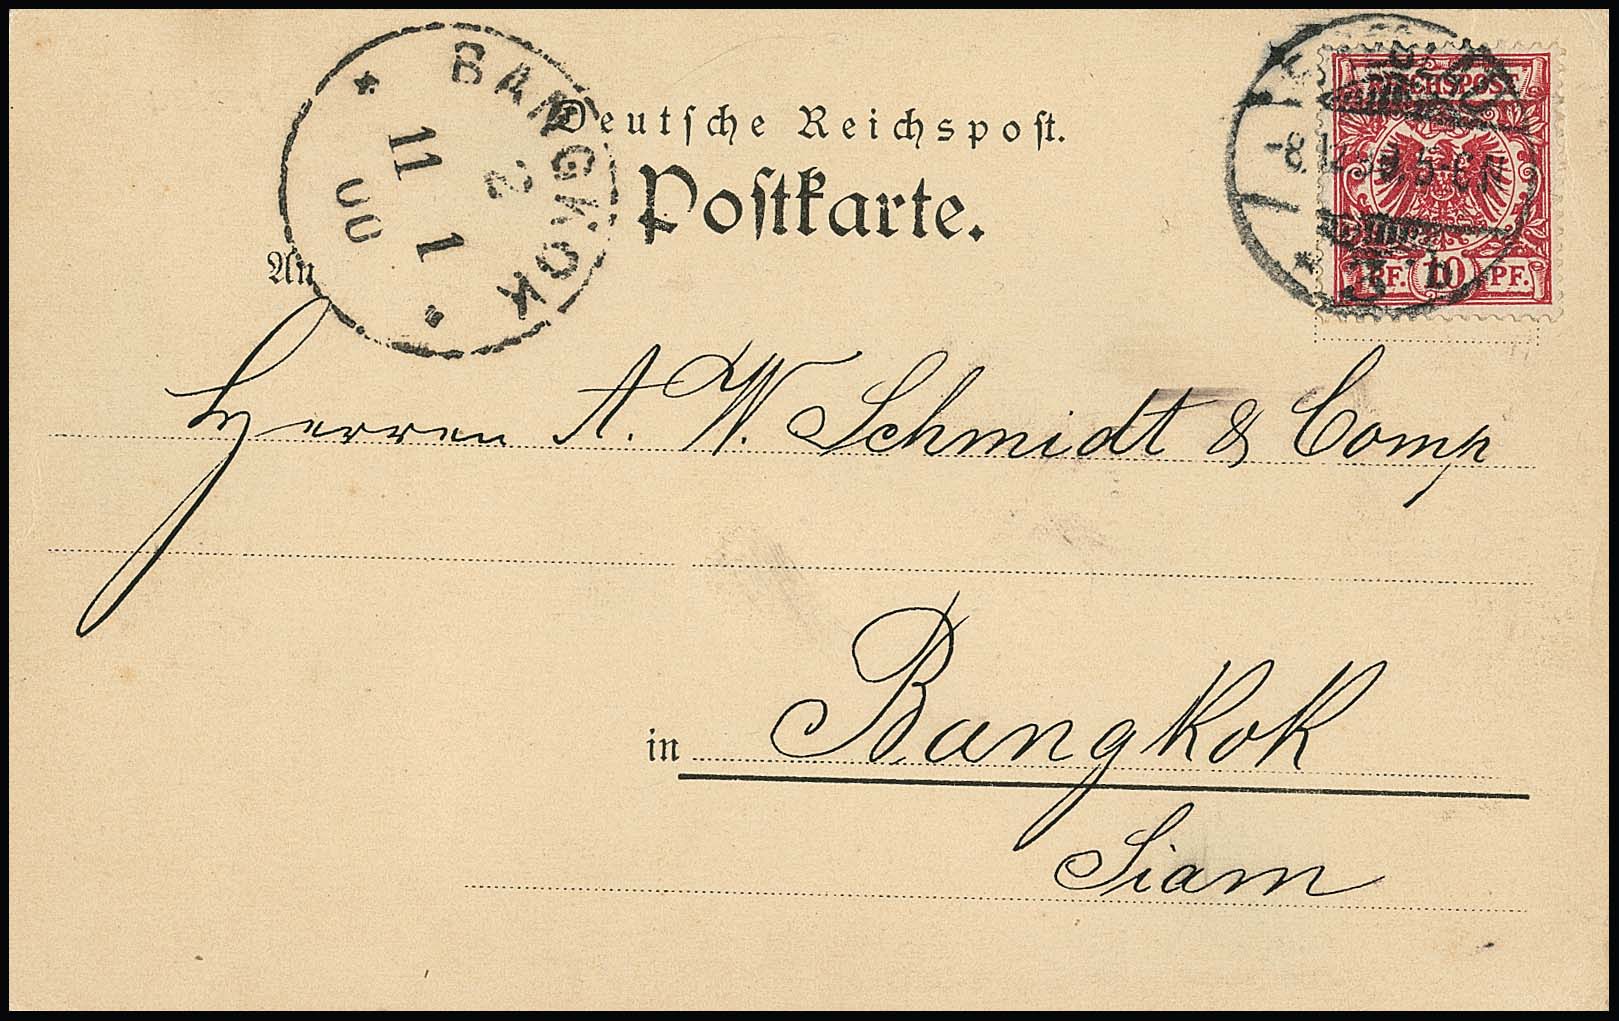 BANGKOK
2
11 1
00
Deutsche Reichspost.
Postkarte.
REICHSPOST
-8.12.99. 5-6 N
PF. 10 PF.
An
Herren A. W. Schmidt & Comp
in Bangkok
Siam